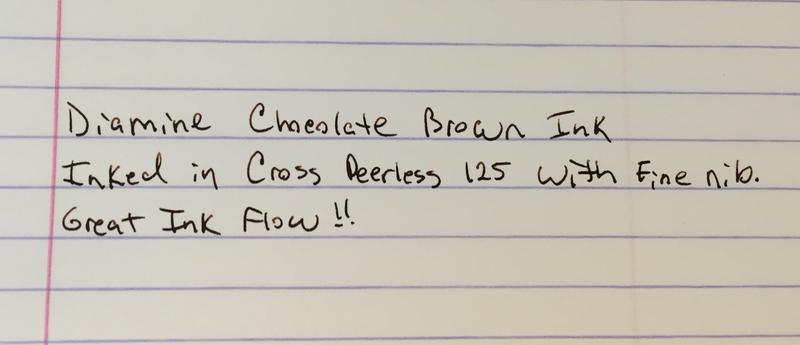 Diamine Chocolate Brown Ink
Inked in Cross Peerless 125 with Fine nib.
Great Ink Flow!!